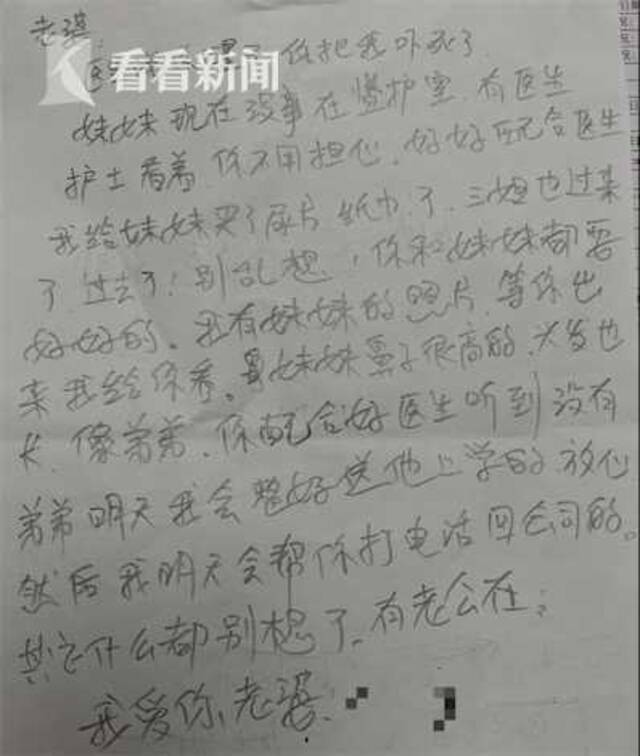 老婆
医 你把我吓死了.
看看新闻
妹妹现在没事在监护室.有医生
护士看着.你不用担心.好好配合医生
我给妹妹买了尿片 纸巾了.三姐也过来
了.过去了!别乱想.,你和妹妹都要
好好的。我有妹妹的照片.等你出
来我给你看。妹妹鼻子很高的.头发也
长.像弟弟.你配合好医生听到没有
弟弟明天我会整好送他上学的.放心
然后我明天会帮你打电话回公司的。
其它什么都别想了.有老公在;
我爱你、老婆: